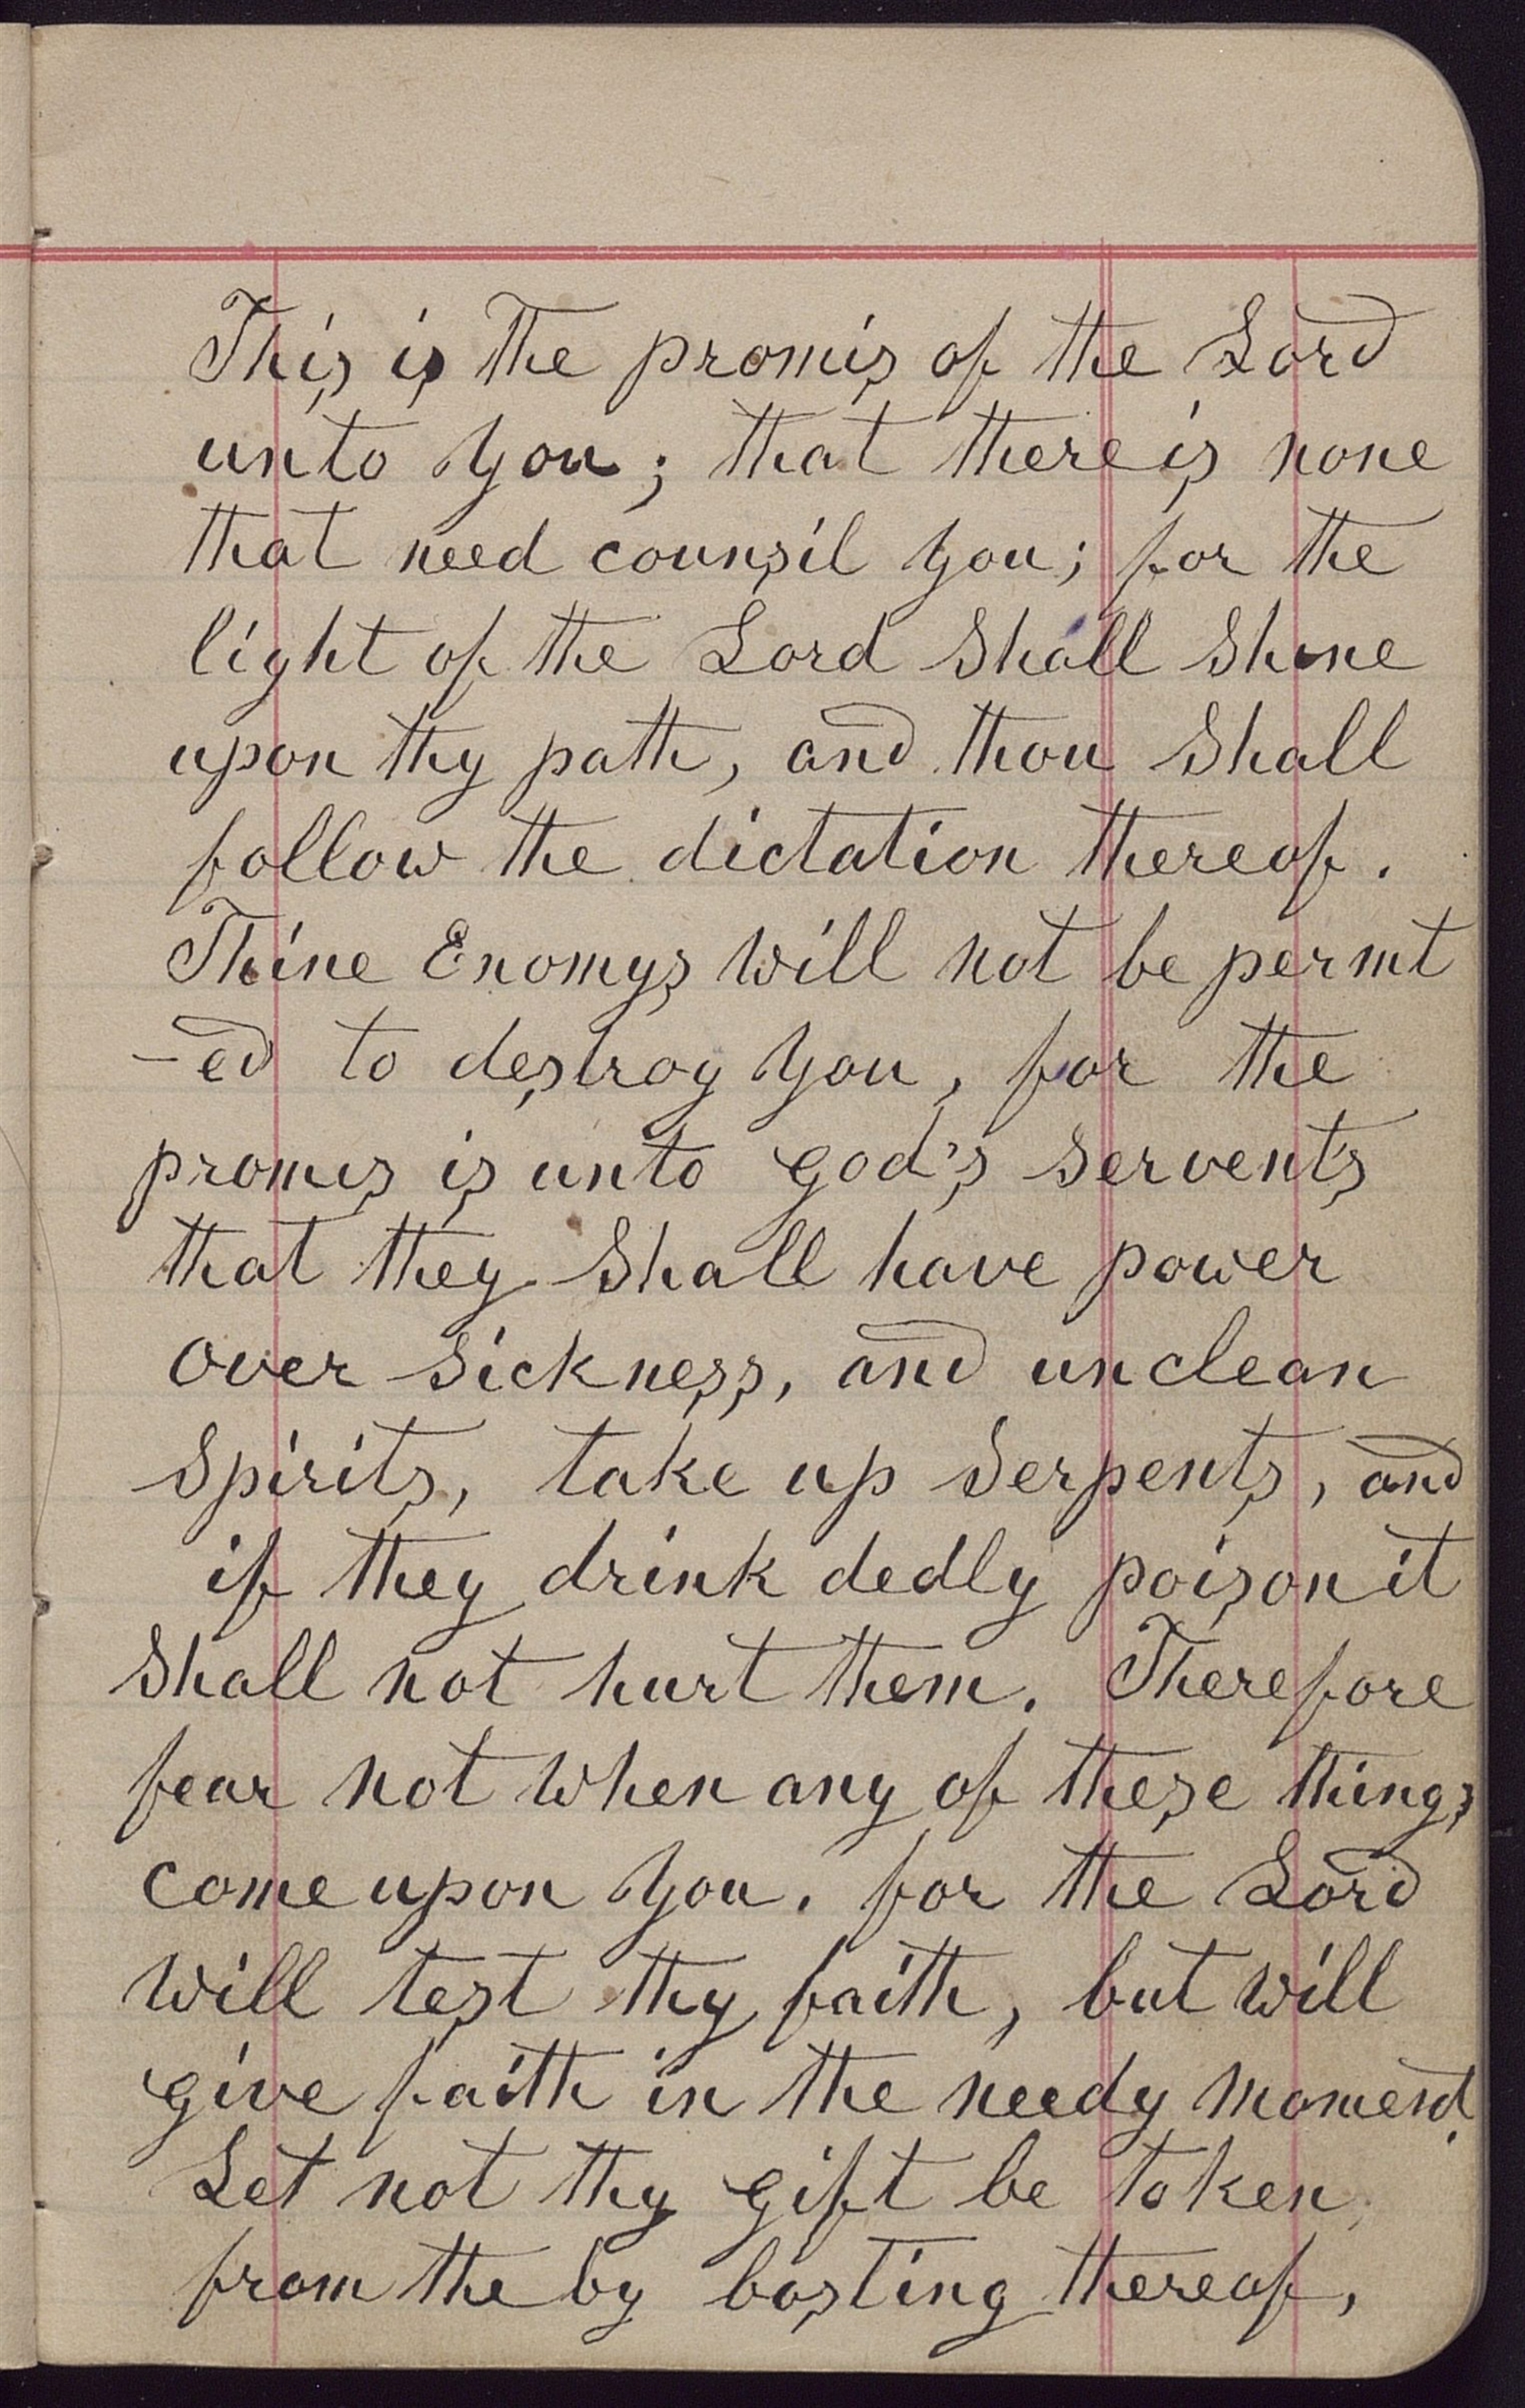 This is the promis of the Lord
unto you; that there is none
that need counsil you; for the
light of the Lord shall shine
upon thy path, and thou shall
follow the dictation thereof.
Thine Enomys will not be permt
-ed to destroy you, for the
promis is unto god's servents
that they shall have power
over sickness, and unclean
spirits, take up serpents, and
if they drink dedly poison it
shall not hurt them. Therefore
fear not when any of these things
come upon you. for the Lord
will test thy faith, but will
give faith in the needy moment.
Let not thy gift be taken
from the by bosting thereof,